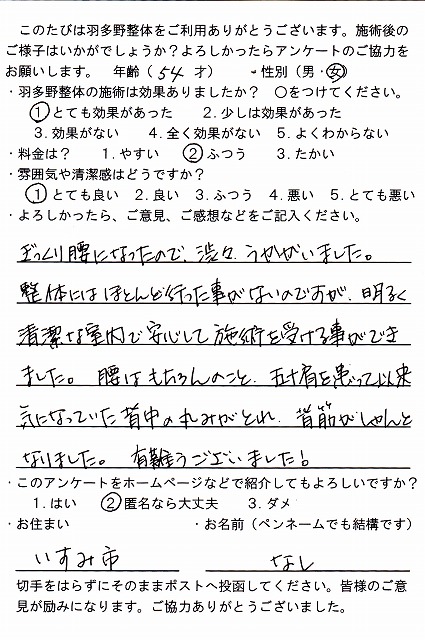 このたびは羽多野整体をご利用ありがとうございます。施術後の
ご様子はいかがでしょうか？よろしかったらアンケートのご協力を
お願いします。 年齢（54才） ・性別（男・女）
・羽多野整体の施術は効果ありましたか？ ○をつけてください。
①とても効果があった 2.少しは効果があった
3.効果がない 4.全く効果がない 5.よくわからない
・料金は？ 1.やすい ②ふつう 3.たかい
・雰囲気や清潔感はどうですか？
①とても良い 2.良い 3.ふつう 4.悪い 5.とても悪い
・よろしかったら、ご意見、ご感想などをご記入ください。
ぎっくり腰になったので、渋々、うかがいました。
整体にはほとんど行った事がないのですが、明るく
清潔な室内で安心して施術を受ける事ができ
ました。腰はもちろんのこと、五十肩を患って以来
気になっていた背中の丸みがとれ、背筋がしゃんと
なりました。有難うございました！
・このアンケートをホームページなどで紹介してもよろしいですか？
1.はい ②匿名なら大丈夫 3.ダメ
・お住まい ・お名前（ペンネームでも結構です）
いすみ市 なし
切手をはらずにそのままポストへ投函してください。皆様のご意
見が励みになります。ご協力ありがとうございました。